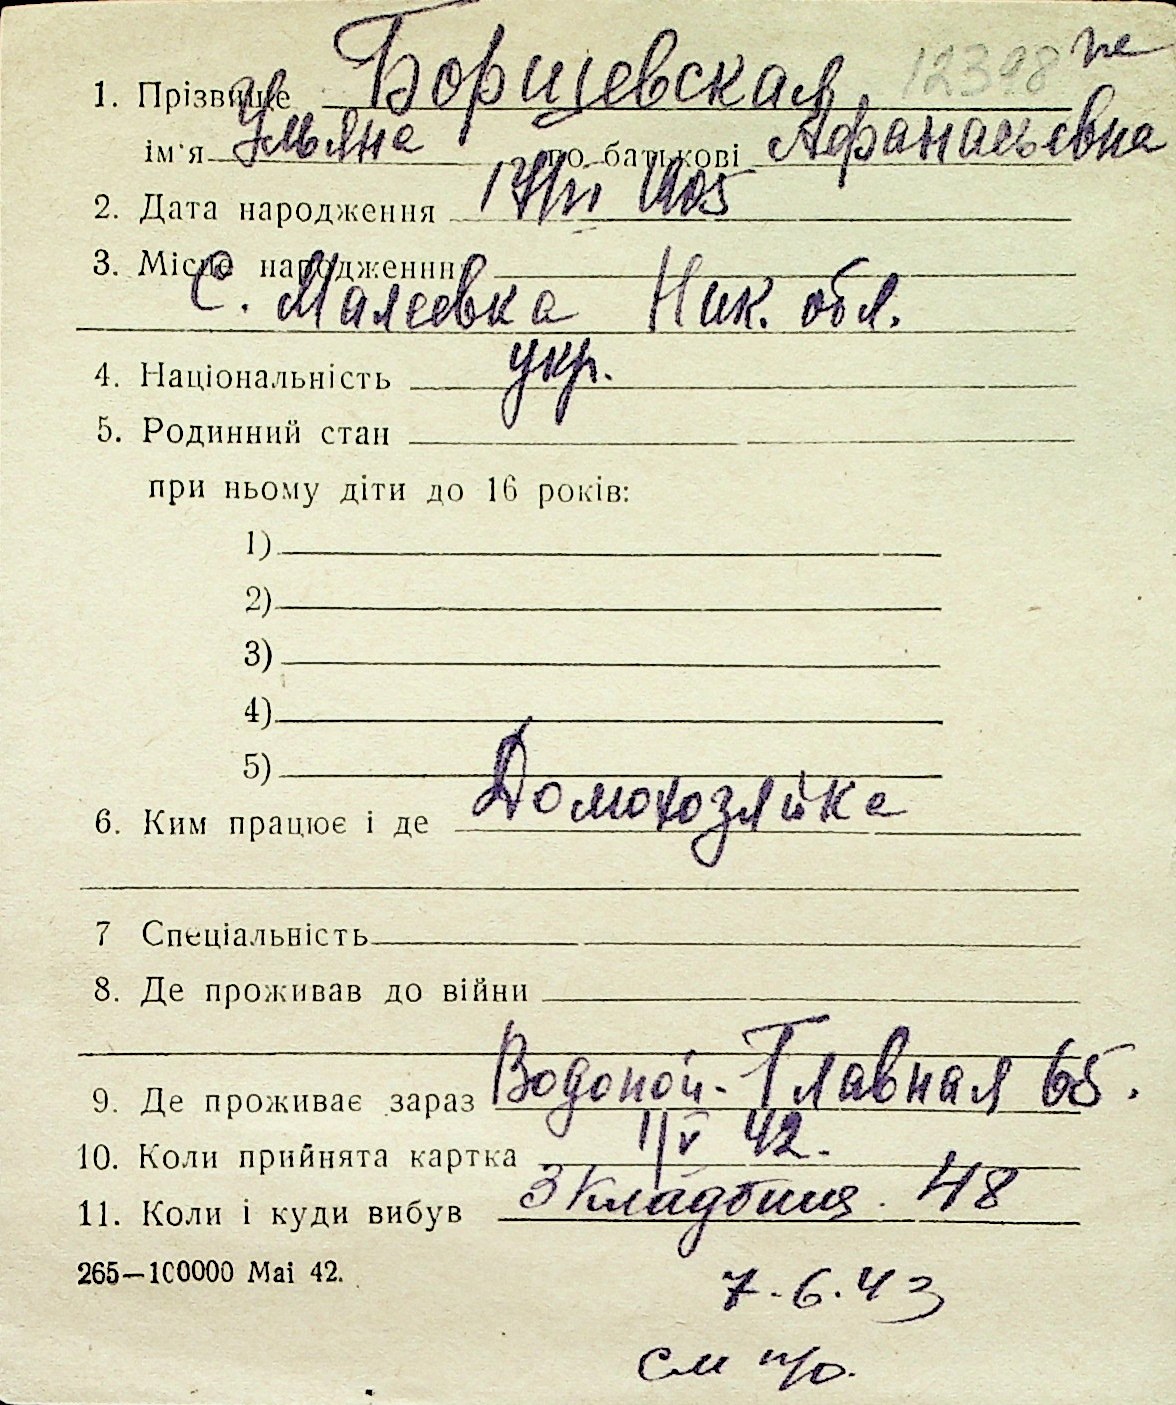 1. Прізвище Борщевская 12398
ім'я Ульяна по батькові Афанасьевна
2. Дата народження 1905
3. Місце народження
с. Малеевка Ник. обл.
4. Національність укр.
5. Родинний стан
при ньому діти до 16 років:
1)
2)
3)
4)
5)
6. Ким працює і де Домохозяйка
7 Спеціальність
8. Де проживав до війни
9. Де проживає зараз Водопой - Главная 65.
10. Коли прийнята картка 1/V 42.
11. Коли і куди вибув 3 Кладбищ. 48
265—100000 Маі 42.
7.6.43
см н/о.